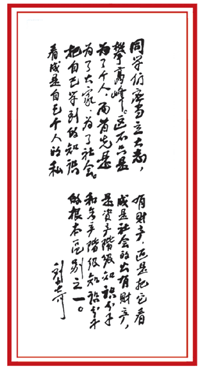 同学们应当立大志，
攀高峰。这不只是
为了个人，而首先是
为了大家、为了社会。
把自己学到的知识
看成是自己个人的私
有财产，还是把它看
成是社会的公有财产，
是资产阶级知识分子
和无产阶级知识分子
的根本区别之一。
刘少奇